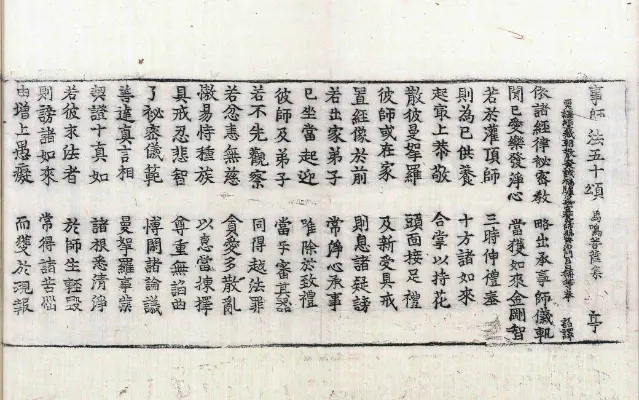 事師法五十頌 馬鳴菩薩集
詔譯
依諸經律祕密教 略出承事師儀軌
聞已愛樂發淨心 當獲如來金剛智
若於灌頂師 三時伸禮奉
則為已供養 十方諸如來
起冣上恭敬 合掌以持花
散彼曼拏羅 頭面接足禮
彼師或在家 及新受具戒
置經像於前 則息諸疑謗
若出家弟子 常淨心承事
已坐當起迎 唯除於致禮
彼師及弟子 當互審其器
若不先觀察 同得越法罪
若忿恚無慈 貪愛多散亂
憿易恃種族 以慧當揀擇
具戒忍悲智 尊重無諂曲
了祕密儀範 博閑諸論議
善達真言相 曼拏羅事業
契證十真如 諸根悉清淨
若彼求法者 於師生輕毀
則謗諸如來 常得諸苦惱
由增上愚癡 而獲於現報